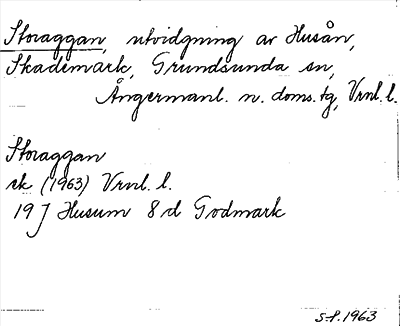 Storaggan, utvidgning av Husån,
Skademark, Grundsunda sn,
Ångermanl. n. doms.tg, Vrnl. l.
Storaggan
ek (1963) Vrnl. l.
19 J Husum 8 d Godmark
S-f. 1963